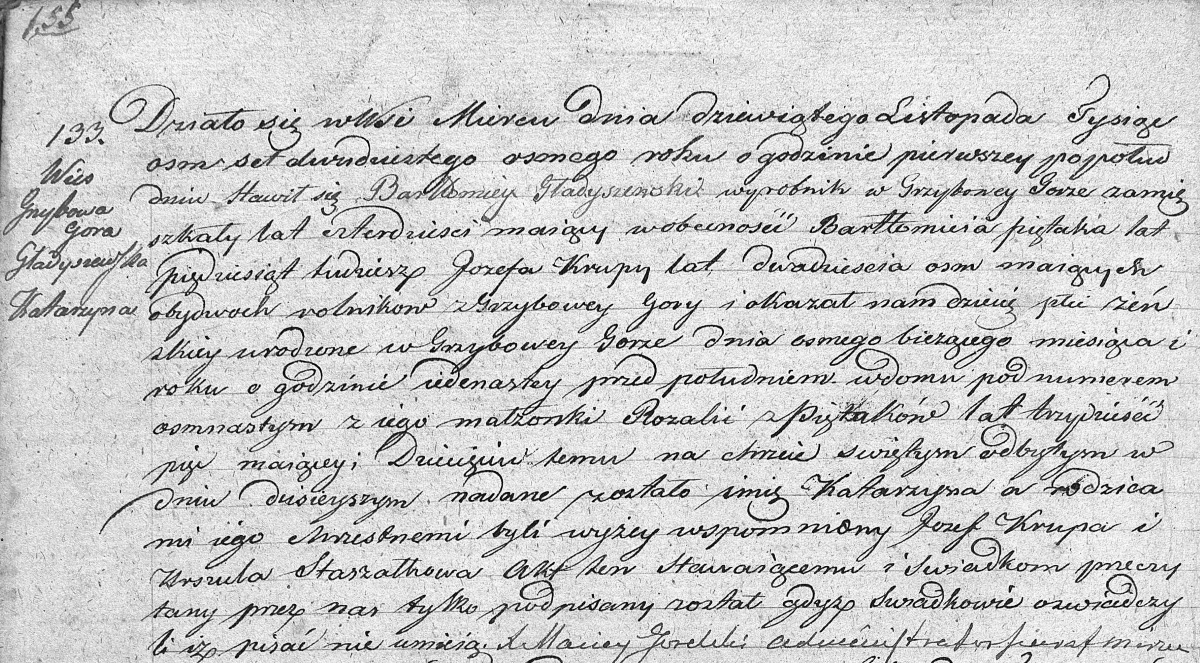 155
133.
Wies
Grzybowa
Gora
Gładyszewska
Katarzyna
Działo się w Wsi Mircu dnia dziewiątego Listopada Tysiąc
osm set dwudziestego osmego roku o godzinie pierwszey popołu
dniu Stawił się Bartłomiey Gładyszewski wyrobnik w Grzybowey Gorze zamie
szkały lat czterdzieści maiący w obecności Bartłomieia piętaka lat
pięćdziesiąt tudziesz Jozefa Krupy lat dwadziescia osm maiących
obydwoch rolnikow z Grzybowey Gory i okazał nam dziecię płci żeń
skiey urodzone w Grzybowey Gorze dnia osmego bieżącego miesiąca i
roku o godzinie iedenastey przed południem w domu pod numerem
osmnastym z iego małżonki Rozalii z Piętaków lat trzydzieści
pięc maiącey; Dziecięciu temu na chrzcie swiętym odbytym w
dniu dzisieyszym nadane zostało imię Katarzyna a rodzica
mi iego chrzestnemi byli wyżey wspomniony Jozef Krupa i
Urszula Staszałkowa Akt ten Stawaiącemu i swiadkom przeczy
tany przez nas tylko podpisany został gdyż swiadkowie oswiadczy
li iż pisać nie umieią X Maciey